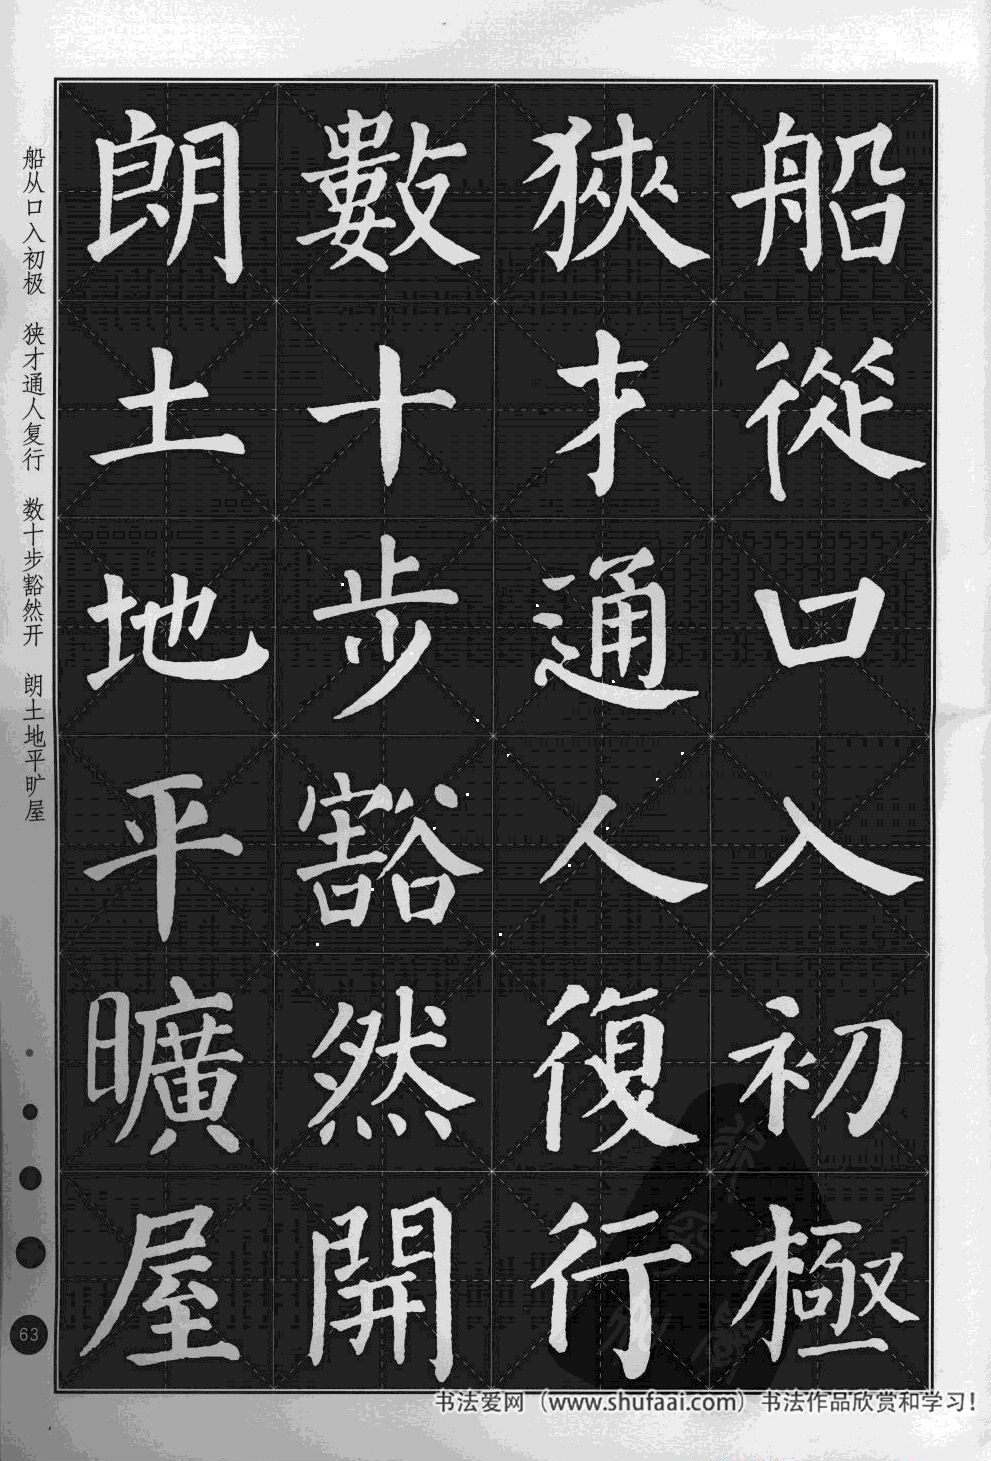 船從口入初極
狹才通人復行
數十步豁然開
朗土地平曠屋
船从口入初极 狭才通人复行 数十步豁然开 朗土地平旷屋
63
书法爱网（www.shufaai.com）书法作品欣赏和学习！